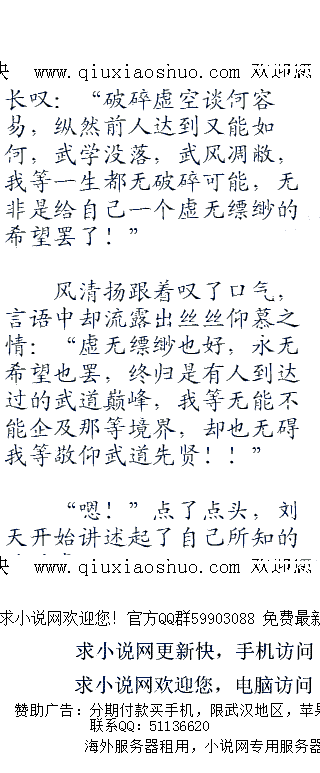 快 www.qiuxiaoshuo.com 欢迎您
长叹：“破碎虚空谈何容
易，纵然前人达到又能如
何，武学没落，武风凋敝，
我等一生都无破碎可能，无
非是给自己一个虚无缥缈的
希望罢了！”
风清扬跟着叹了口气，
言语中却流露出丝丝仰慕之
情：“虚无缥缈也好，永无
希望也罢，终归是有人到达
过的武道巅峰，我等无能不
能企及那等境界，却也无碍
我等敬仰武道先贤！！”
“嗯！”点了点头，刘
天开始讲述起了自己所知的
快 www.qiuxiaoshuo.com 欢迎您
求小说网欢迎您! 官方QQ群59903088 免费最新
求小说网更新快，手机访问
求小说网欢迎您，电脑访问
赞助广告：分期付款买手机，限武汉地区，苹果
联系QQ：51136620
海外服务器租用，小说网专用服务器